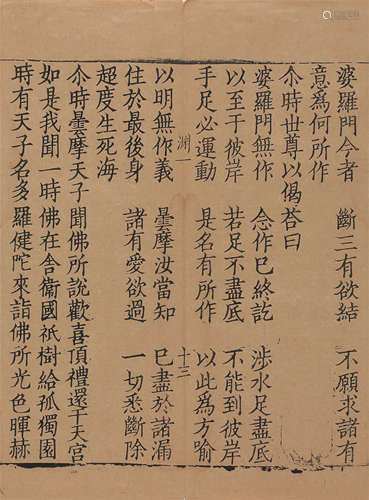 婆羅門今者　斷三有欲結　不願求諸有
意為何所作
尒時世尊以偈荅曰
婆羅門無作　念作已終訖　涉水足盡底
以至于彼岸　若足不盡底　不能到彼岸
手足必運動　是名有所作　以此為方喻
淵一　十三
以明無作義　曇摩汝當知　已盡於諸漏
住於最後身　諸有愛欲過　一切悉斷除
超度生死海
尒時曇摩天子聞佛所說歡喜頂禮還于天宮
如是我聞一時佛在舍衛國祇樹給孤獨園
時有天子名多羅健陀來詣佛所光色暉赫